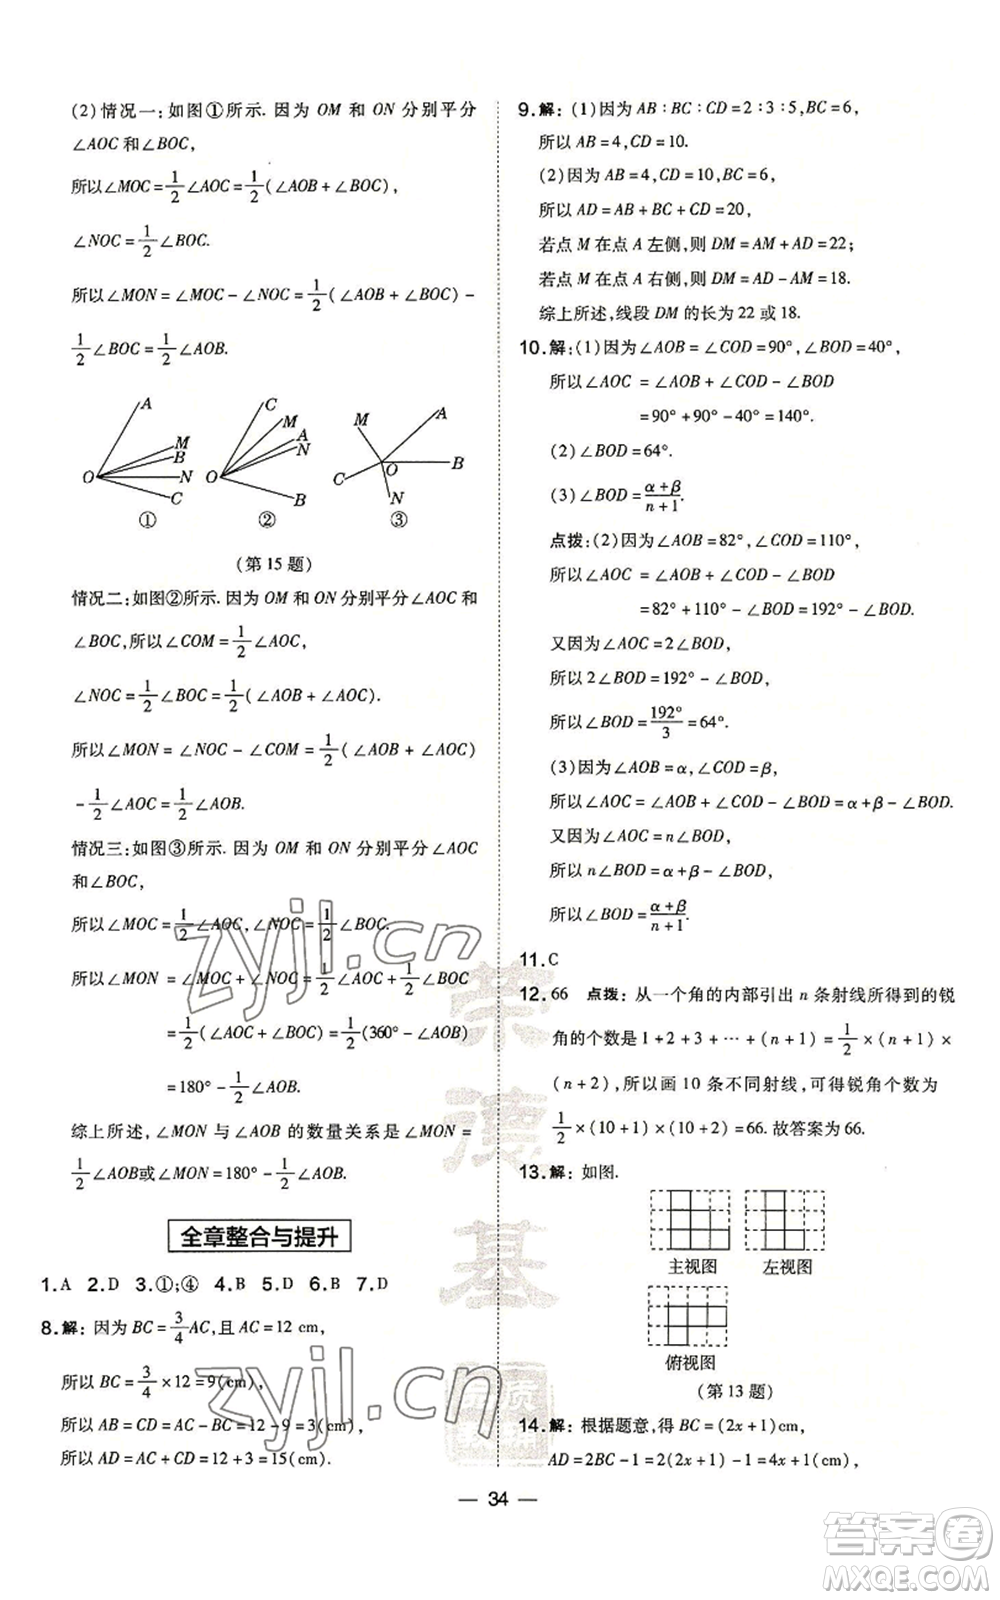 (2)情况一:如图①所示.因为 OM 和 ON 分别平分
∠AOC 和∠BOC,
所以∠MOC=1/2∠AOC=1/2(∠AOB+∠BOC),
∠NOC=1/2∠BOC.
所以∠MON=∠MOC-∠NOC=1/2(∠AOB+∠BOC)-
1/2∠BOC=1/2∠AOB.
A M B N C O ①
C M A N B O ②
M A B C N O ③
(第 15 题)
情况二:如图②所示.因为 OM 和 ON 分别平分∠AOC 和
∠BOC,所以∠COM=1/2∠AOC,
∠NOC=1/2∠BOC=1/2(∠AOB+∠AOC).
所以∠MON=∠NOC-∠COM=1/2(∠AOB+∠AOC)
-1/2∠AOC=1/2∠AOB.
情况三:如图③所示.因为 OM 和 ON 分别平分∠AOC
和∠BOC,
所以∠MOC=1/2∠AOC,∠NOC=1/2∠BOC.
所以∠MON=∠MOC+∠NOC=1/2∠AOC+1/2∠BOC
=1/2(∠AOC+∠BOC)=1/2(360°-∠AOB)
=180°-1/2∠AOB.
综上所述,∠MON 与∠AOB 的数量关系是∠MON=
1/2∠AOB或∠MON=180°-1/2∠AOB.
全章整合与提升
1.A 2.D 3.①;④ 4.B 5.D 6.B 7.D
8.解:因为 BC=3/4AC,且 AC=12 cm,
所以 BC=3/4×12=9(cm),
所以 AB=CD=AC-BC=12-9=3(cm),
所以 AD=AC+CD=12+3=15(cm).
9.解:(1)因为 AB∶BC∶CD=2∶3∶5,BC=6,
所以 AB=4,CD=10.
(2)因为 AB=4,CD=10,BC=6,
所以 AD=AB+BC+CD=20,
若点 M 在点 A 左侧,则 DM=AM+AD=22;
若点 M 在点 A 右侧,则 DM=AD-AM=18.
综上所述,线段 DM 的长为 22 或 18.
10.解:(1)因为∠AOB=∠COD=90°,∠BOD=40°,
所以∠AOC=∠AOB+∠COD-∠BOD
=90°+90°-40°=140°.
(2)∠BOD=64°.
(3)∠BOD=(α+β)/(n+1).
点拨:(2)因为∠AOB=82°,∠COD=110°,
所以∠AOC=∠AOB+∠COD-∠BOD
=82°+110°-∠BOD=192°-∠BOD.
又因为∠AOC=2∠BOD,
所以 2∠BOD=192°-∠BOD,
所以∠BOD=192°/3=64°.
(3)因为∠AOB=α,∠COD=β,
所以∠AOC=∠AOB+∠COD-∠BOD=α+β-∠BOD.
又因为∠AOC=n∠BOD,
所以 n∠BOD=α+β-∠BOD,
所以∠BOD=(α+β)/(n+1).
11.C
12.66 点拨:从一个角的内部引出 n 条射线所得到的锐
角的个数为 1+2+3+…+(n+1)=1/2×(n+1)×
(n+2),所以画 10 条不同射线,可得锐角个数为
1/2×(10+1)×(10+2)=66.故答案为 66.
13.解:如图.
主视图 左视图
俯视图
(第 13 题)
14.解:根据题意,得 BC=(2x+1)cm,
AD=2BC-1=2(2x+1)-1=(4x+1)cm,
34
zyjl.cn
zyjl.cn
荣德基
答案卷
MXQE.COM